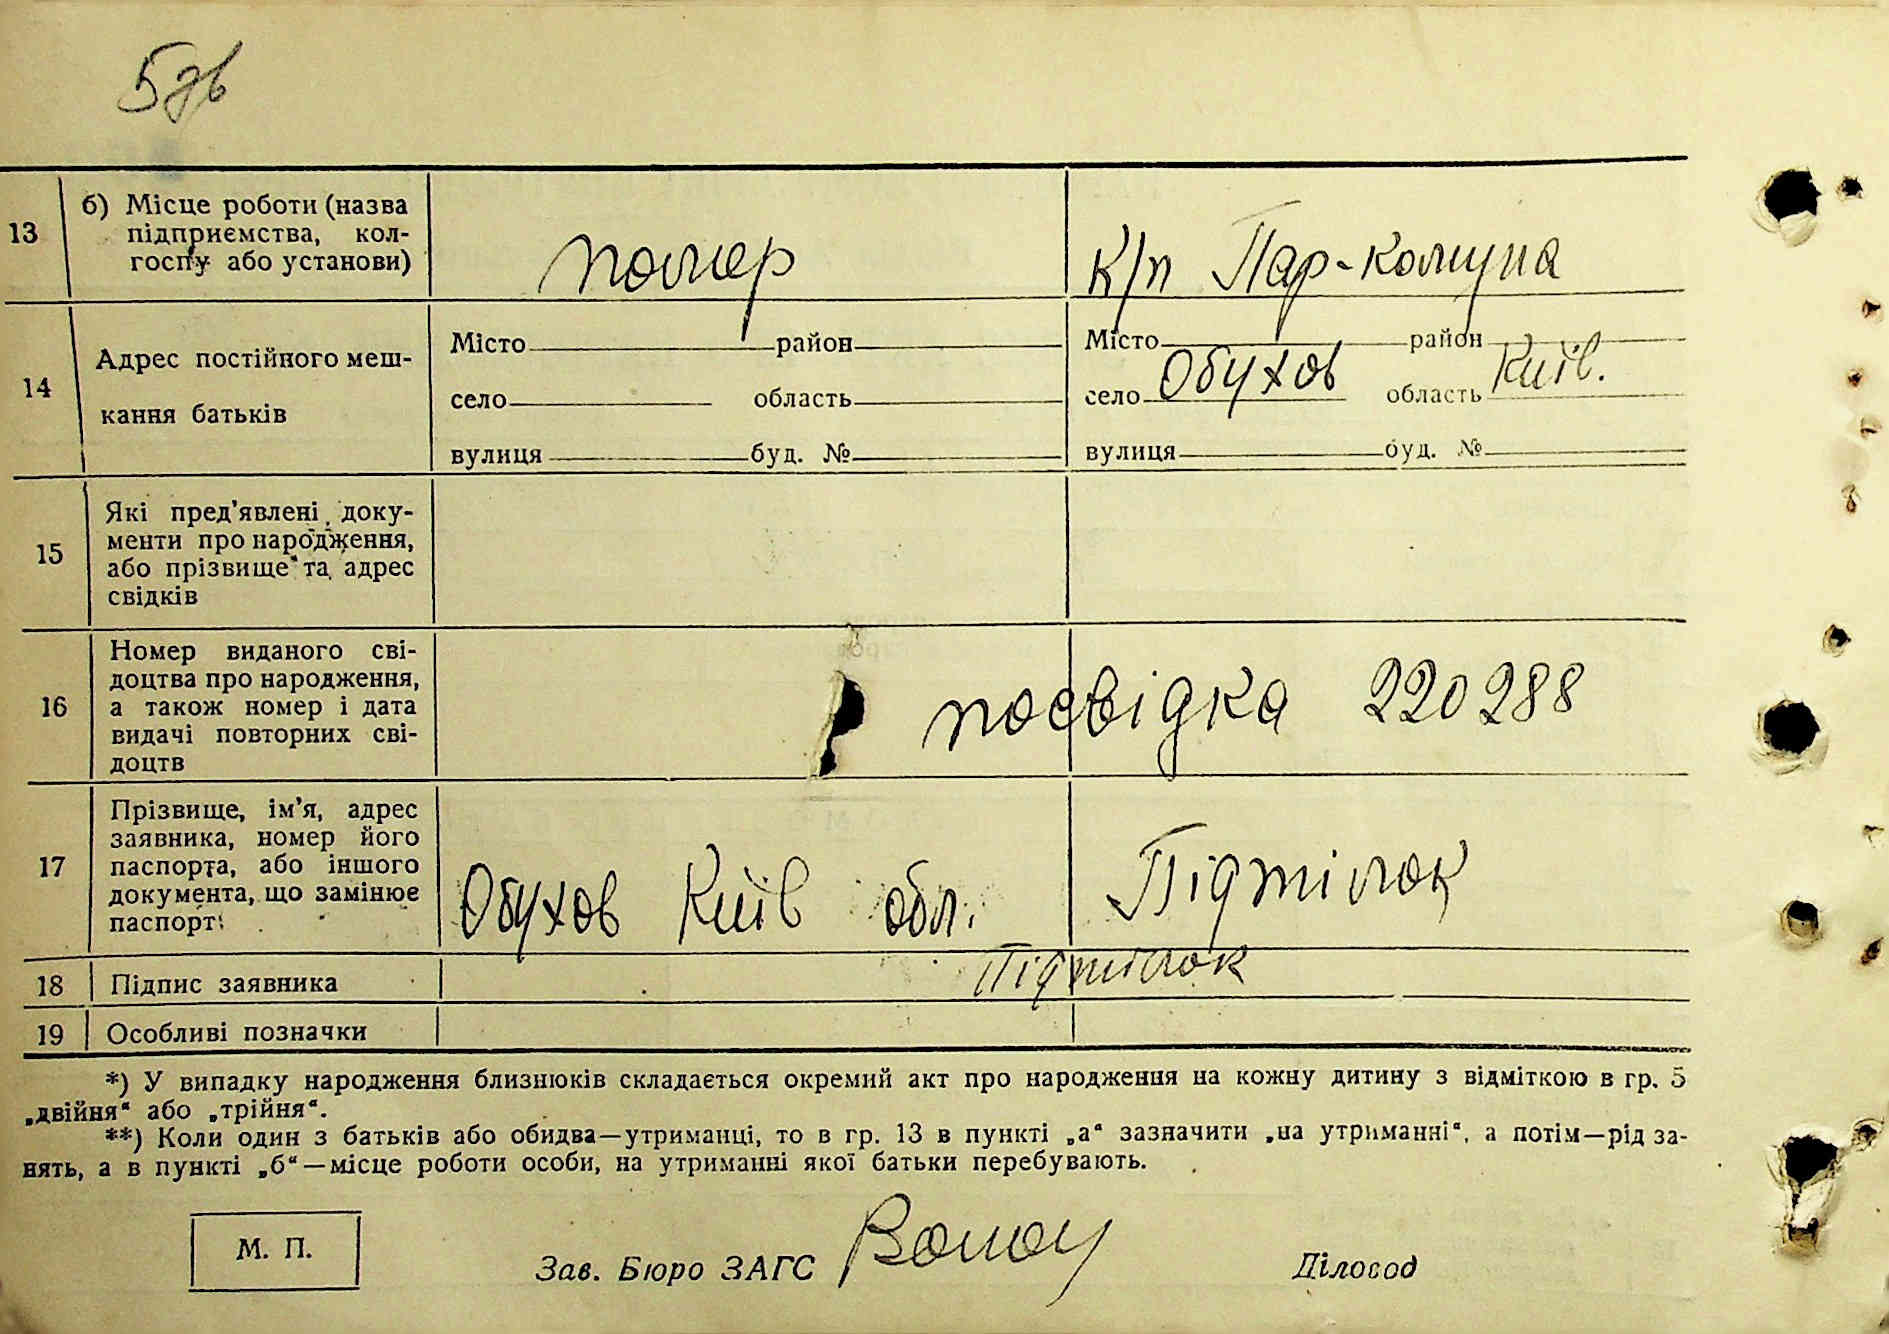 5 дв
13 б) Місце роботи (назва підприємства, колгоспу або установи) помер к/п Пар-комуна
14 Адрес постійного мешкання батьків
Місто район Місто район
село область село Обухов область Київ.
вулиця буд. № вулиця буд. №
15 Які пред'явлені документи про народження, або прізвище та адрес свідків
16 Номер виданого свідоцтва про народження, а також номер і дата видачі повторних свідоцтв посвідка 220288
17 Прізвище, ім'я, адрес заявника, номер його паспорта, або іншого документа, що замінює паспорт Обухов Київ обл. Підтілок
18 Підпис заявника Підтілок
19 Особливі позначки
*) У випадку народження близнюків складається окремий акт про народження на кожну дитину з відміткою в гр. 5
„двійня“ або „трійня“.
**) Коли один з батьків або обидва—утриманці, то в гр. 13 в пункті „а“ зазначити „на утриманні“, а потім—рід за-
нять, а в пункті „б“—місце роботи особи, на утриманні якої батьки перебувають.
М. П.
Зав. Бюро ЗАГС Діловод